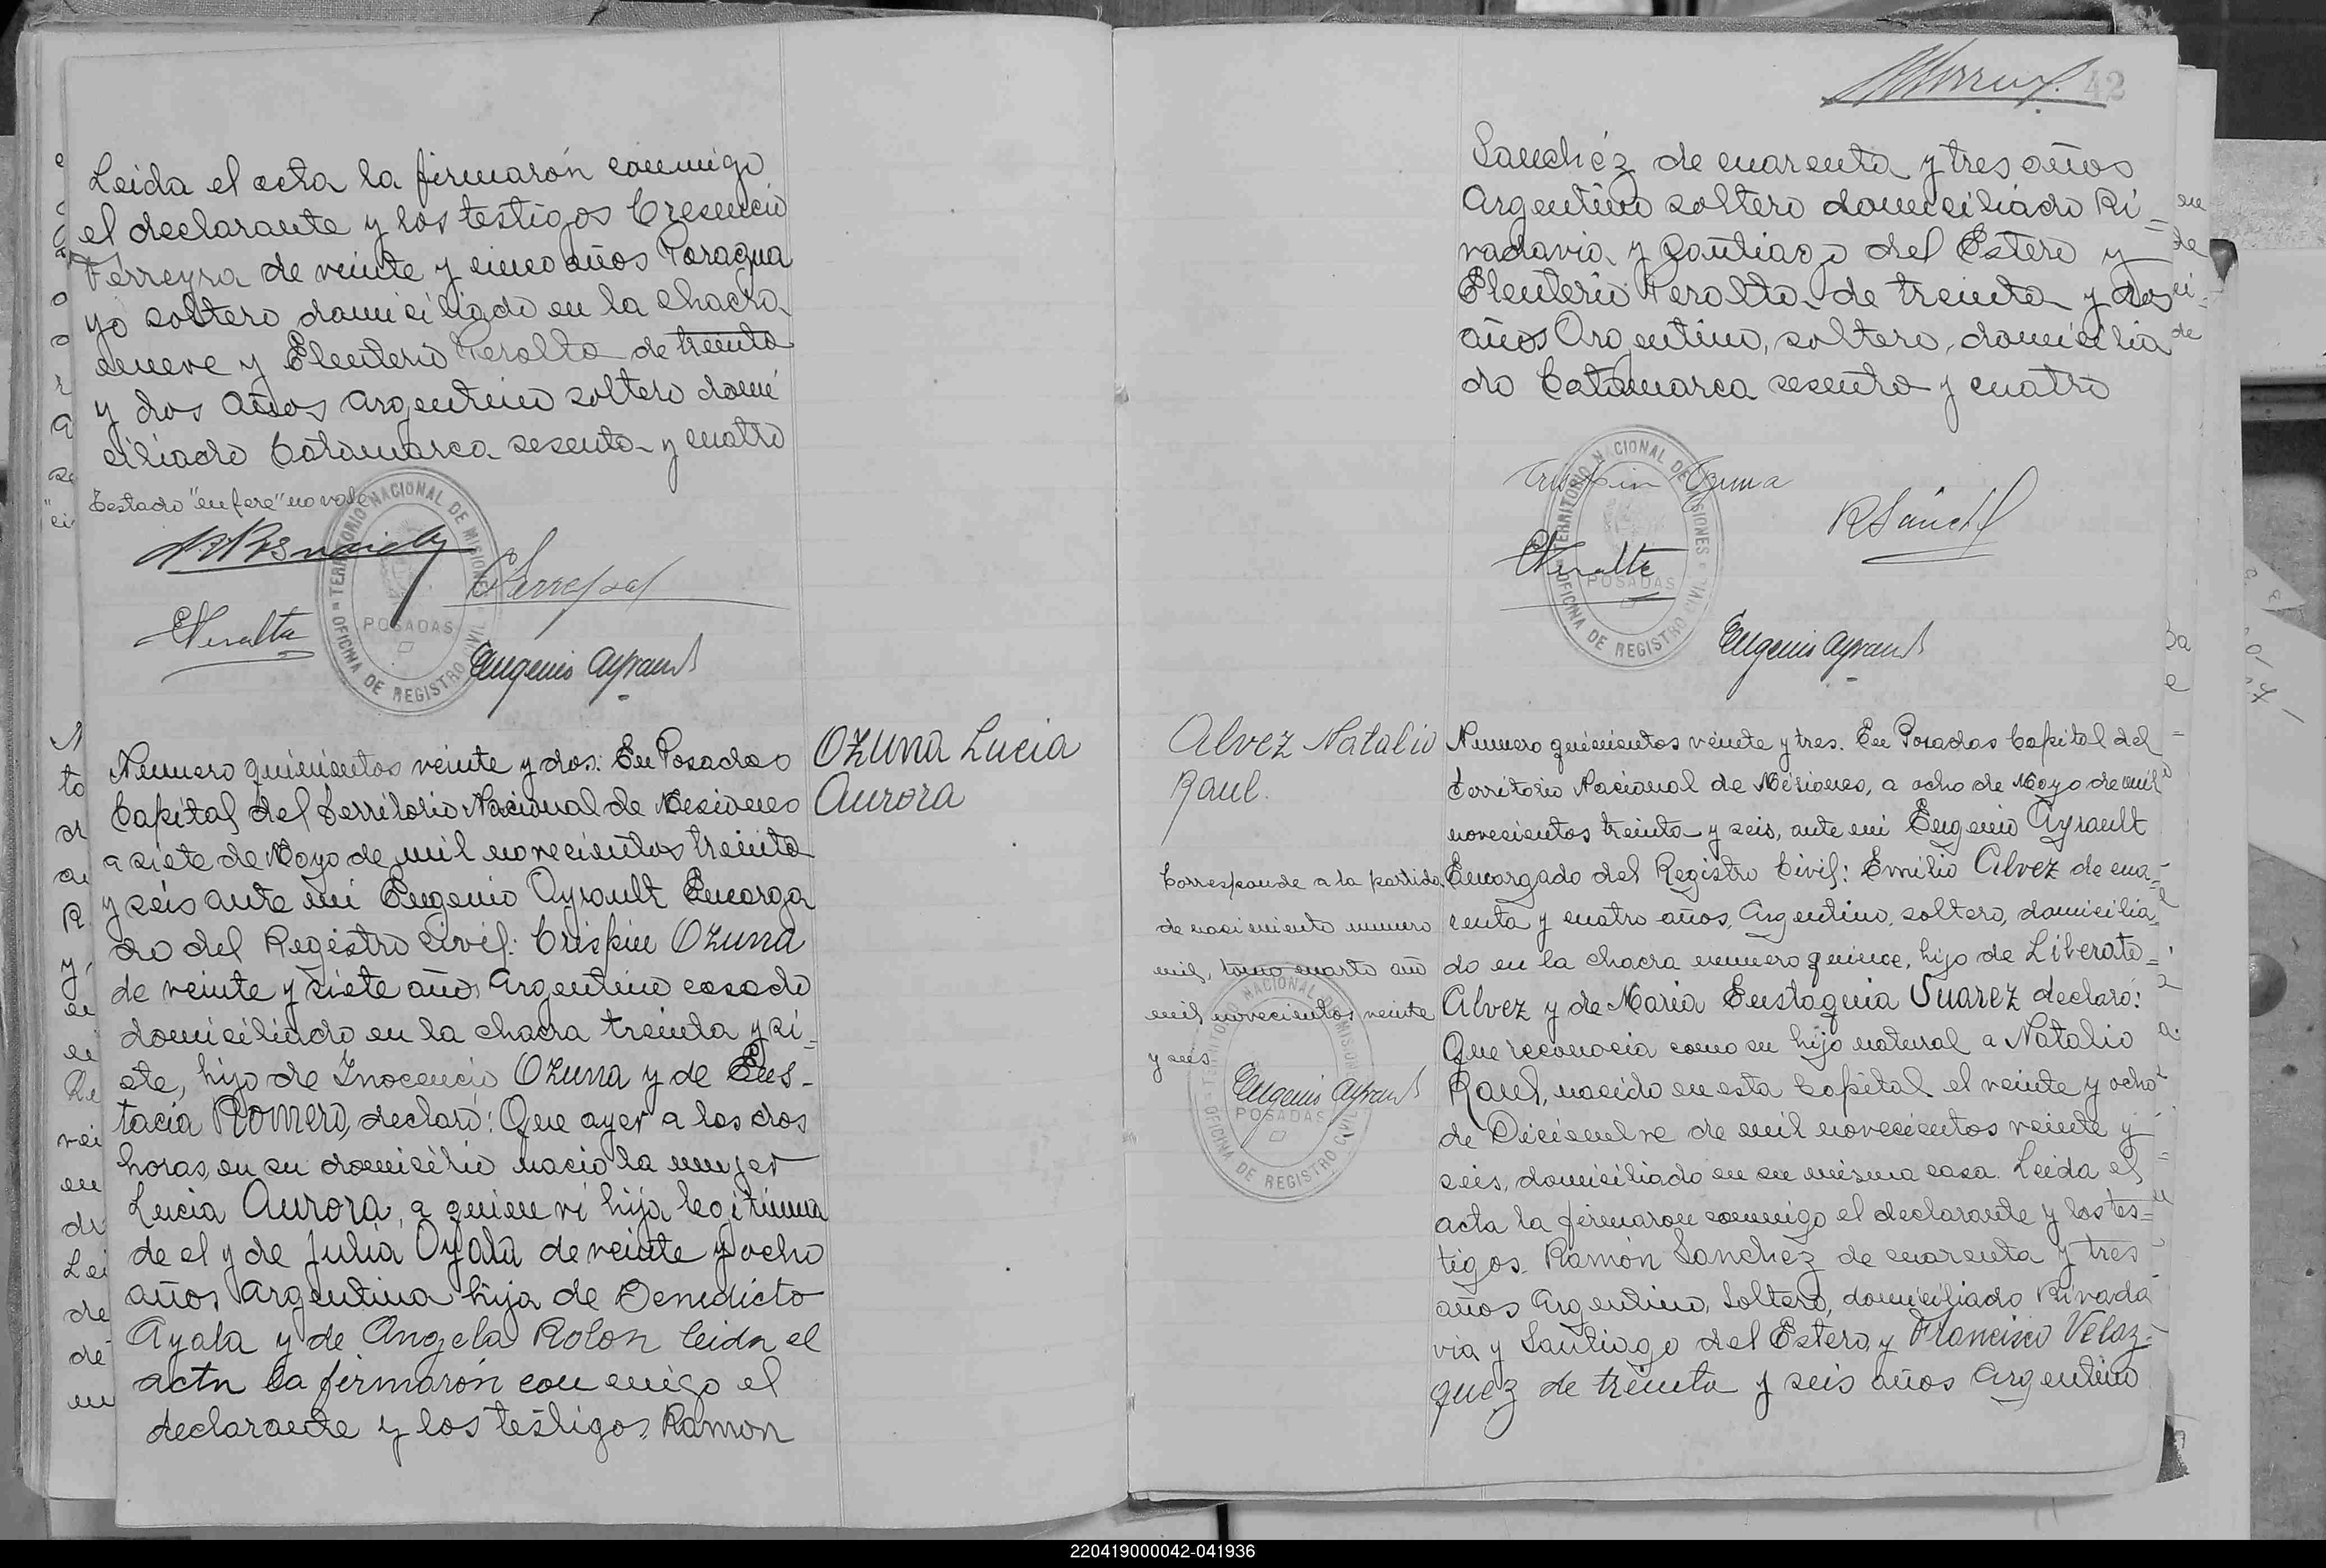 Leida el acta la firmarón conmigo
el declarante y los testigos Cresencio
Ferreyra de veinte y cinco años Paragua
yo soltero domiciliado en la chacra
nueve y Eleuterio Peralta de treinta
y dos años argentino soltero domi
ciliado Catamarca sesenta y cuatro
Testado "en fere" no vale
TERRITORIO NACIONAL DE MISIONES
POSADAS
OFICINA DE REGISTRO CIVIL
EPeralta
CFerreyra
Eugenio Ayrault
Numero quinientos veinte y dos: En Posadas
Capital del Territorio Nacional de Misiones
a siete de Mayo de mil novecientos treinta
y seis ante mi Eugenio Ayrault Encarga
do del Registro Civil: Crispin Ozuna
de veinte y siete años Argentino casado
domiciliado en la chacra treinta y si-
ete, hijo de Inocencio Ozuna y de Eus-
tacia Romero, declaró: Que ayer a las dos
horas, en su domicilio nacio la mujer
Lucia Aurora, a quien vi hija legitima
de el y de Julia Ayala de veinte y ocho
años Argentina hija de Benedicto
Ayala y de Angela Rolon leida el
acta la firmarón con migo el
declarante y los testigos Ramon
Ozuna Lucia
Aurora
42
Sanchéz de cuarenta y tres años
Argentino soltero domiciliado Ri-
vadavia y Santiago del Estero y
Eleuterio Peralta de treinta y dos
años Argentino, soltero, domicilia
do Catamarca sesenta y cuatro
TERRITORIO NACIONAL DE MISIONES
POSADAS
OFICINA DE REGISTRO CIVIL
Crispin Ozuna
RSánch
EPeralta
Eugenio Ayrault
Alvez Natalio
Raul.
Corresponde a la partida
de nacimiento numero
mil, tomo cuarto año
mil novecientos veinte
y seis.
TERRITORIO NACIONAL DE MISIONES
Eugenio Ayrault
POSADAS
OFICINA DE REGISTRO CIVIL
Numero quinientos veinte y tres. En Posadas Capital del
Territorio Nacional de Misiones, a ocho de Mayo de mil
novecientos treinta y seis, ante mi Eugenio Ayrault
Encargado del Registro Civil: Emilio Alvez de cua-
renta y cuatro años, Argentino, soltero, domicilia-
do en la chacra numero quince, hijo de Liberato
Alvez y de Maria Eustaquia Suarez declaró:
Que reconocia como su hijo natural a Natalio
Raul, nacido en esta Capital el veinte y ocho
de Diciembre de mil novecientos veinte y
seis, domiciliado en su misma casa. Leida el
acta la firmaron conmigo el declarante y los tes-
tigos. Ramón Sanchez de cuarenta y tres
años Argentino, Soltero, domiciliado Rivada
via y Santiago del Estero, y Francisco Velaz-
quez de treinta y seis años Argentino
220419000042-041936